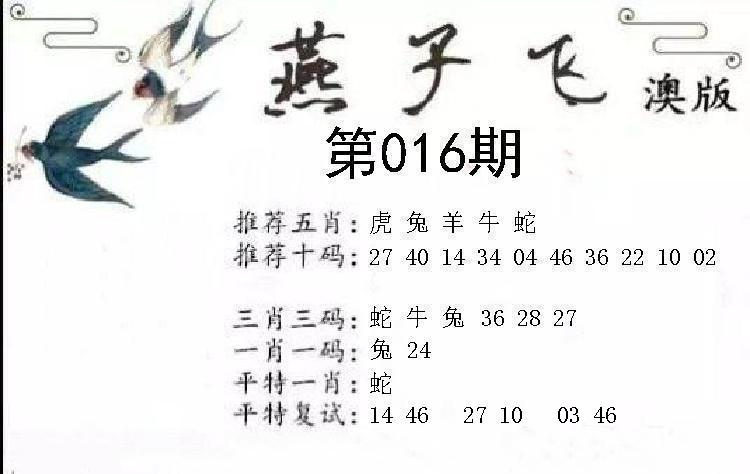 燕子飞 澳版
第016期
推荐五肖: 虎 兔 羊 牛 蛇
推荐十码: 27 40 14 34 04 46 36 22 10 02
三肖三码: 蛇 牛 兔 36 28 27
一肖一码: 兔 24
平特一肖: 蛇
平特复试: 14 46 27 10 03 46